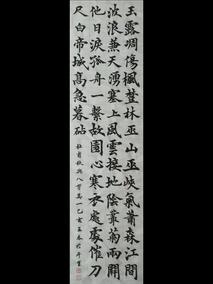 玉露凋傷楓樹林巫山巫峽氣蕭森江間
波浪兼天湧塞上風雲接地陰叢菊兩開
他日淚孤舟一繫故園心寒衣處處催刀
尺白帝城高急暮砧
杜甫秋興八首其一